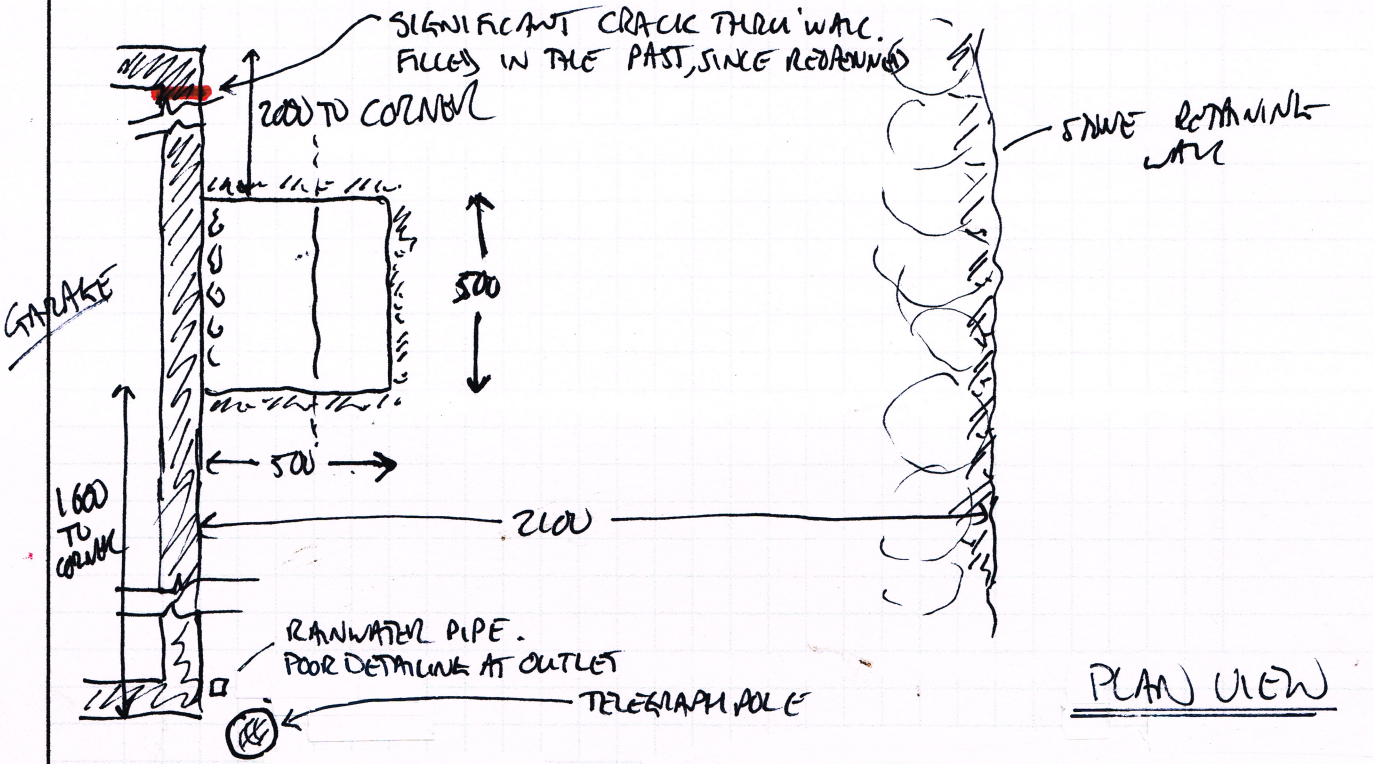 SIGNIFICANT CRACK THRU' WALL.
FILLED IN THE PAST, SINCE REOPENNED
2000 TO CORNER
SAME RETAINING
WALL
GARAGE
500
500
1600
TO
CORNER
2100
RAINWATER PIPE.
POOR DETAILING AT OUTLET
TELEGRAPH POLE
PLAN VIEW